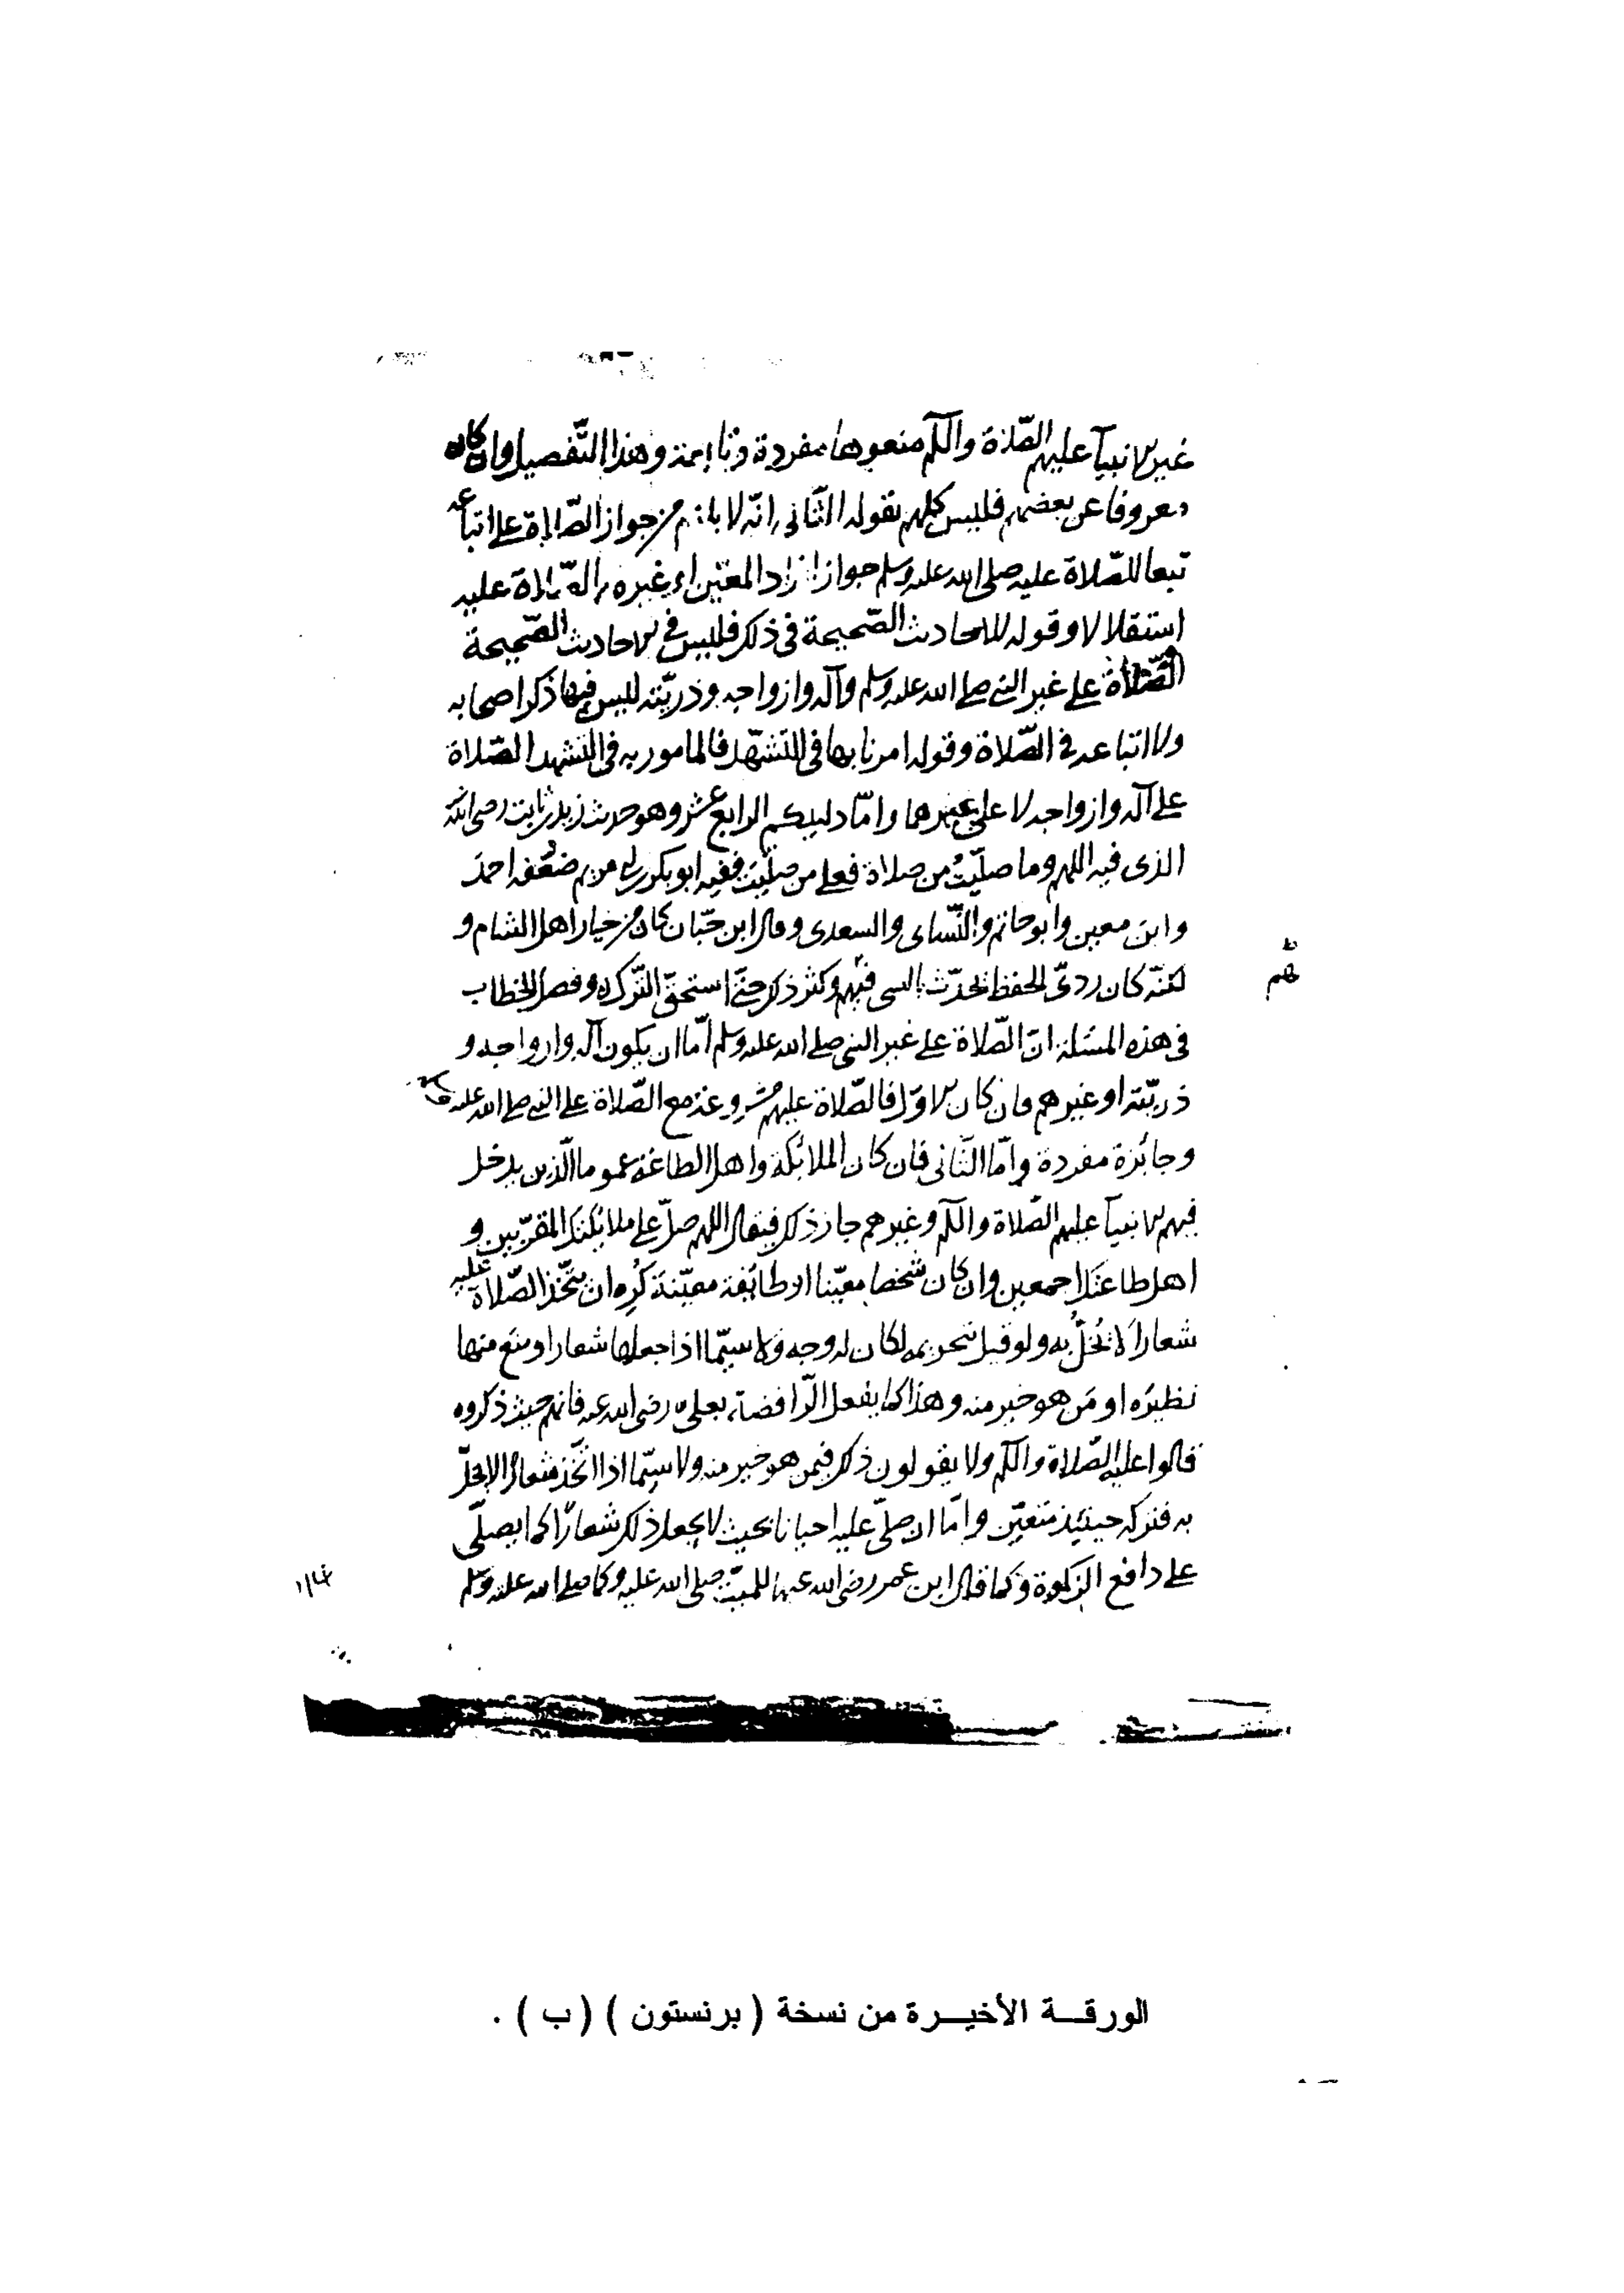 غير الانبيآ عليهم الصّلاة والسّلم منعوها مفردة وتابعة وهذا التّفصيل وان كان
معروفا عن بعضهم فليس كلهم يقوله الثّانى انّه لا يلزم من جواز الصّلاة على اتباعه
تبعا للصّلاة عليه صلى الله عليه وسلم جواز افراد المعيّن او غيره بالصّلاة عليه
استقلالا وقوله للاحاديث الصّحيحة فى ذلك فليس فى الاحاديث الصّحيحة
الصّلاة على غير النبى صلى الله عليه وسلم وآله وازواجه وذريّته ليس فيها ذكر اصحابه
ولا اتباعه فى الصّلاة وقوله امرنا بها فى التشهّد فالمامور به فى التشهد الصّلاة
على آله وازواجه لا على غيرهما وامّا دليلكم الرابع عشر وهو حديث زيد بن ثابت رضى الله عنه
الذى فيه اللهم وما صلّيتُ من صلاة فعلى من صلّيتَ ففيه ابو بكر بن ابى مريم ضعّفه احمد
وابن معين وابو حاتم والنّساى والسعدى وقال ابن حبّان كان من خيار اهل الشام و
لكنّه كان ردىّ الحفظ يحدّث بالشى فيهم وكثر ذلك حتى استحق التّرك وفصل الخطاب
فى هذه المسئلة انّ الصّلاة على غير النبى صلى الله عليه وسلم امّا ان يكون آله وازواجه و
ذريّته او غيرهم فان كان الاوّل فالصّلاة عليهم مشروعة مع الصّلاة على النبى صلى الله عليه وسلم
وجائزة مفردة وامّا الثّانى فان كان الملائكة واهل الطاعة عموما الّذين يدخل
فيهم الانبيآ عليهم الصّلاة والسّلم وغيرهم جاز ذلك فيقال اللهم صلّ على ملائكتك المقرّبين و
اهل طاعتك اجمعين وان كان شخصا معيّنا او طائفة معيّنة كُره ان يتّخذ الصّلاة عليه
شعارا لا يُخلّ به ولو قيل بتحريمه لكان له وجه ولا سيّما اذا جعلها شعارا ومنع منها
نظيرَه او مَن هو خير منه وهذا كما يفعل الرّافضة بعلىّ رضى الله عنه فانهم حيث ذكروه
قالوا عليه الصّلاة والسّلم ولا يقولون ذلك فيمن هو خير منه ولا سيّما اذا اتّخذ شعارًا لا يخلّ
به فتركه حينئذ متعيّن وامّا ان صلّى عليه احيانا بحيث لا يجعل ذلك شعارًا كما يصلّى
على دافع الزكوة وكما قال ابن عمر رضى الله عنهما للميّت صلى الله عليه وكما صلى الله عليه وسلم
الورقة الأخيرة من نسخة ( برنستون ) ( ب ) .